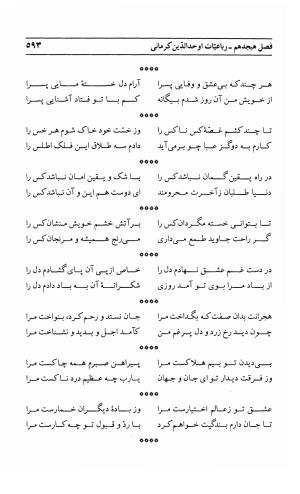 فصل هیجدهم ـ رباعیّات اوحدالدّین کرمانی ۵۹۳
****
هر چند که بی‌عشق و وفایی پسرا آرام دل خستهٔ مایی پسرا
از خویش من آن روز شدم بیگانه کم بما تو فتاد آشنایی پسرا
****
تا چند کشم غصّهٔ ناکس را وز خسّت خود خاک شوم هر خس را
کارم به دو گز عبا چو برمی‌آید دادم سه طلاق این فلک اطلس را
****
در راه یقین گمان نباشد کس را با شک و یقین امان نباشد کس را
دنیا طلبان ز آخرت محرومند ای دوست هم این و آن نباشد کس را
****
تا بتوانی خسته مگردان کس را بر آتش خشم خویش منشان کس را
گر راحت جاوید طمع می‌داری می‌رنج همیشه و مرنجان کس را
****
در دست غم عشق نهادم دل را خاص از پی آن پای گشادم دل را
از باد مرا بوی تو آمد روزی شکرانهٔ آن به باد دادم دل را
****
هجرانت بدان صفت که بگداخت مرا جان نستد و رحم کرد، بنواخت مرا
چون دید رخ زرد و دل پر غم من کآمد اجل و بدید و نشناخت مرا
****
بی‌دیدن تو بیم هلاکست مرا پیراهن صبرم همه چاکست مرا
وز فرقت دیدار تو ای جان و جهان یارب چه عظیم درد ناکست مرا
****
عشق تو ز عالم اختیارست مرا وز بادهٔ دیگران خمارست مرا
تا جان دارم بندگیت خواهم کرد با ردّ و قبول تو چه کارست مرا
****